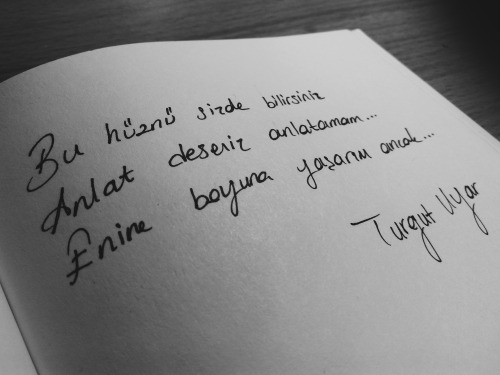 Bu hüznü sizde bilirsiniz
Anlat deseniz anlatamam...
Enine boyuna yaşarım ancak...
Turgut Uyar